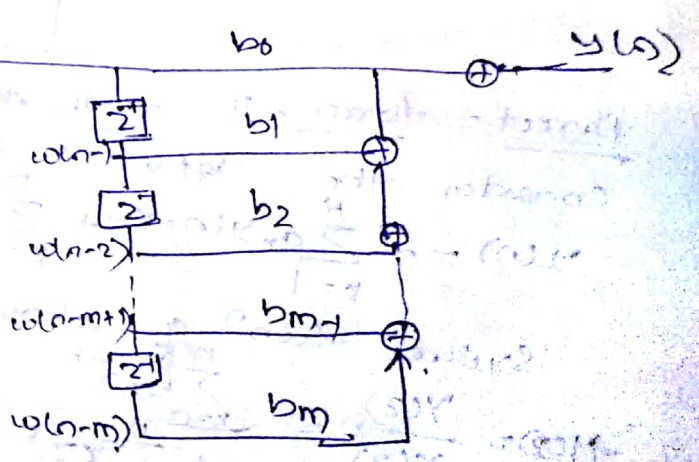 b0 y(n)
z⁻¹
b1
w(n-1)
z⁻¹
b2
w(n-2)
w(n-m+1) bm-1
z⁻¹
w(n-m) bm